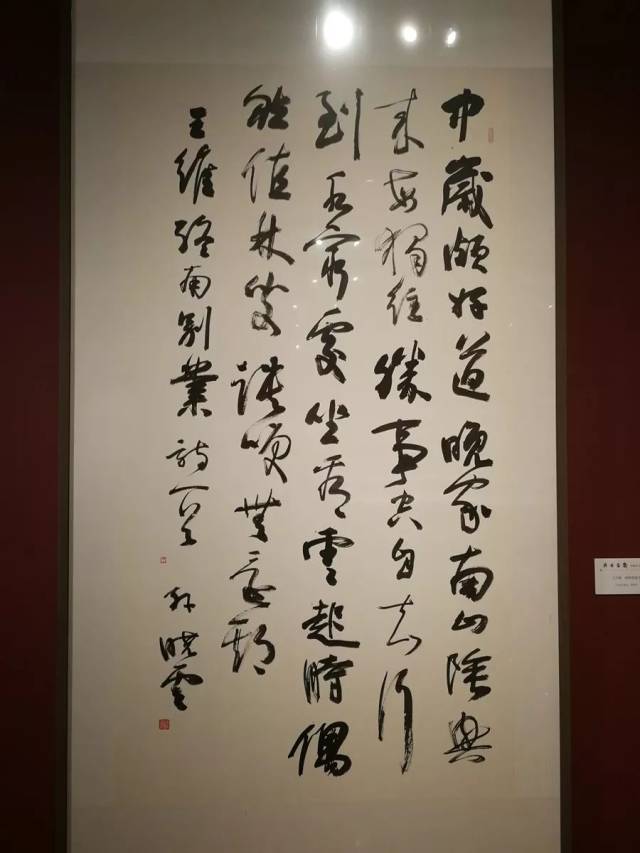 中歲頗好道晚家南山陲興
來每獨往勝事空自知行
到水窮處坐看雲起時偶
然值林叟談笑無還期
王維終南別業詩一首 孫曉雲